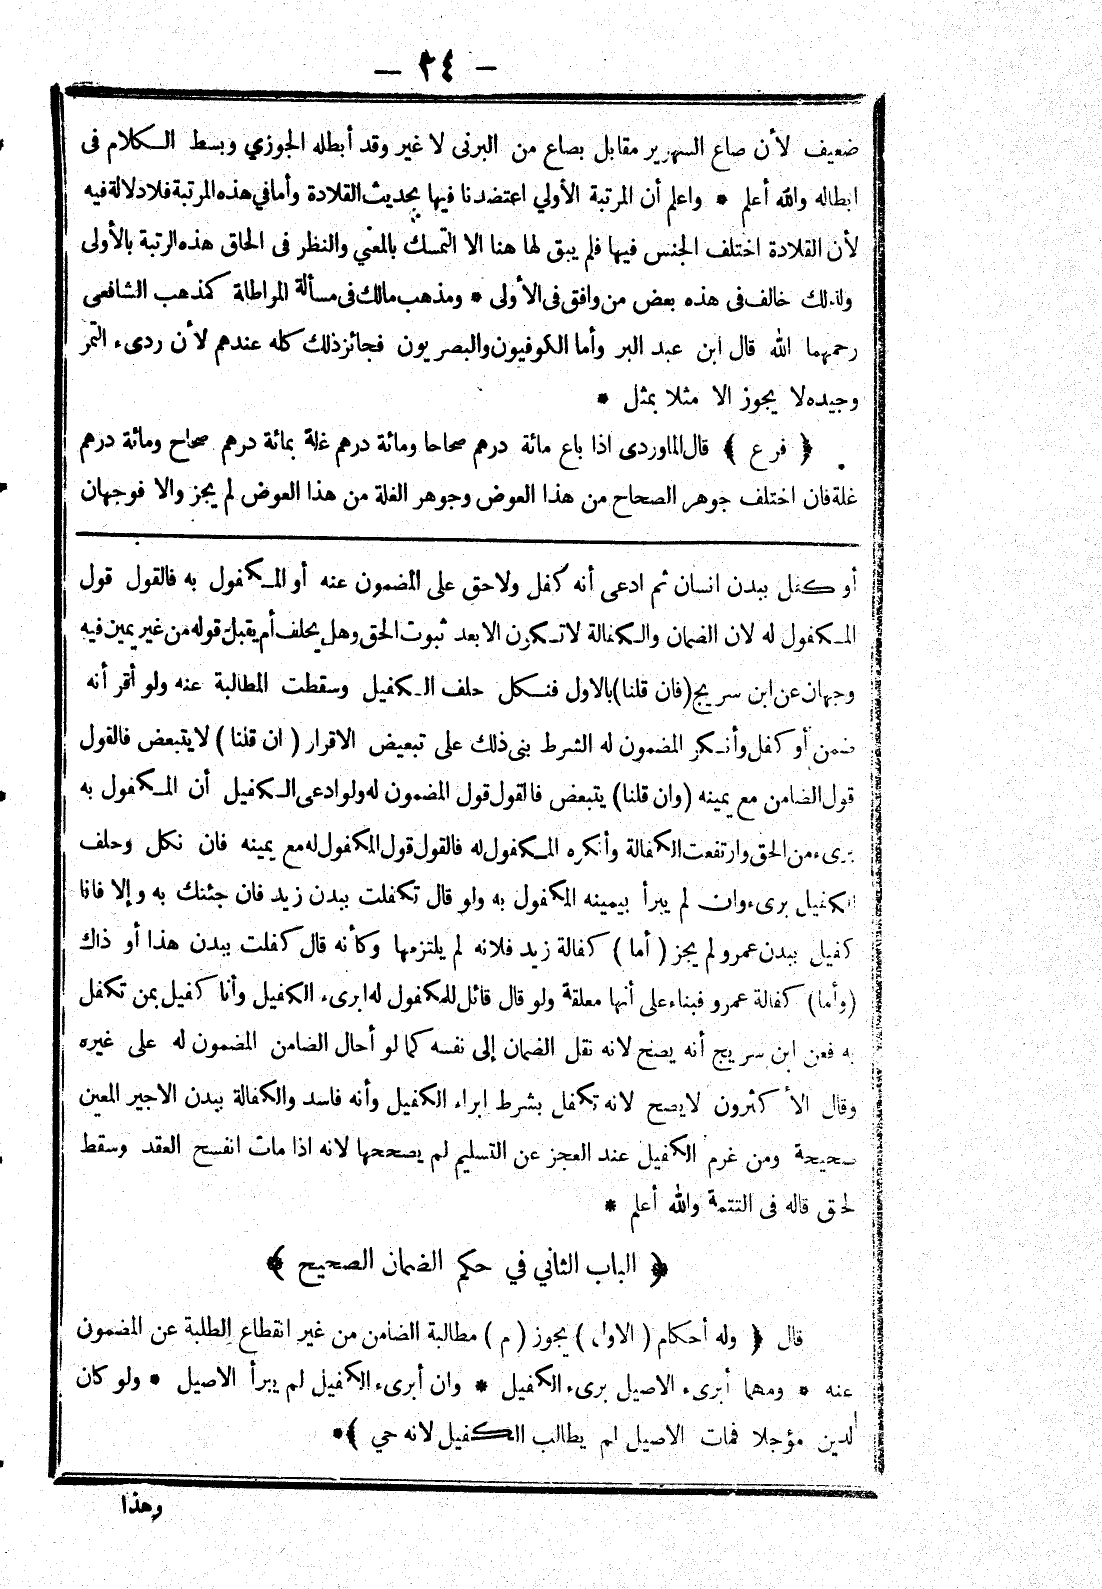 — ٣٤ —
ضعيف لأن صاع السهريز مقابل بصاع من البرنى لا غير وقد أبطله الجوزي وبسط الكلام فى
ابطاله والله أعلم * واعلم أن المرتبة الأولي اعتضدنا فيها بحديث القلادة وأما في هذه المرتبة فلا دلالة فيه
لأن القلادة اختلف الجنس فيها فلم يبق لها هنا الا التمسك بالمعني والنظر فى الحاق هذه الرتبة بالأولى
ولذلك خالف فى هذه بعض من وافق فى الأولى * ومذهب مالك فى مسألة المراطلة كمذهب الشافعى
رحمهما الله قال ابن عبد البر وأما الكوفيون والبصريون فجائز ذلك كله عندهم لأن ردىء التمر
وجيده لا يجوز الا مثلا بمثل *
﴿ فرع ﴾ قال الماوردى اذا باع مائة درهم صحاحا ومائة درهم غلة بمائة درهم صحاح ومائة درهم
غلة فان اختلف جوهر الصحاح من هذا العوض وجوهر الغلة من هذا العوض لم يجز والا فوجهان
أو كفل ببدن انسان ثم ادعى أنه كفل ولاحق على المضمون عنه أو المكفول به فالقول قول
المكفول له لان الضمان والكفالة لا تكون الا بعد ثبوت الحق وهل يحلف أم يقبل قوله من غير يمين فيه
وجهان عن ابن سريج (فان قلنا) بالاول فنكل حلف الكفيل وسقطت المطالبة عنه ولو أقر أنه
ضمن أو كفل وأنكر المضمون له الشرط بنى ذلك على تبعيض الاقرار ( ان قلنا ) لا يتبعض فالقول
قول الضامن مع يمينه (وان قلنا) يتبعض فالقول قول المضمون له ولو ادعى الكفيل أن المكفول به
برىء من الحق وارتفعت الكفالة وأنكره المكفول له فالقول قول المكفول له مع يمينه فان نكل وحلف
الكفيل برىء وان لم يبرأ بيمينه المكفول به ولو قال تكفلت ببدن زيد فان جئتك به وإلا فانا
كفيل ببدن عمرو لم يجز ( أما ) كفالة زيد فلانه لم يلتزمها وكأنه قال كفلت ببدن هذا أو ذاك
(وأما) كفالة عمرو فبناء على أنها معلقة ولو قال قائل للمكفول له ابرىء الكفيل وأنا كفيل بمن تكفل
به فعن ابن سريج أنه يصح لانه نقل الضمان إلى نفسه كما لو أحال الضامن المضمون له على غيره
وقال الأكثرون لا يصح لانه تكفل بشرط ابراء الكفيل وأنه فاسد والكفالة ببدن الاجير المعين
صحيحة ومن غرم الكفيل عند العجز عن التسليم لم يصححها لانه اذا مات انفسح العقد وسقط
لحق قاله فى التتمة والله أعلم *
﴿ الباب الثاني في حكم الضمان الصحيح ﴾
قال ﴿ وله أحكام ( الاول ) يجوز ( م ) مطالبة الضامن من غير انقطاع الطلبة عن المضمون
عنه * ومهما أبرىء الاصيل برىء الكفيل * وان أبرىء الكفيل لم يبرأ الاصيل * ولو كان
الدين مؤجلا فمات الاصيل لم يطالب الكفيل لانه حي ﴾*
وهذا